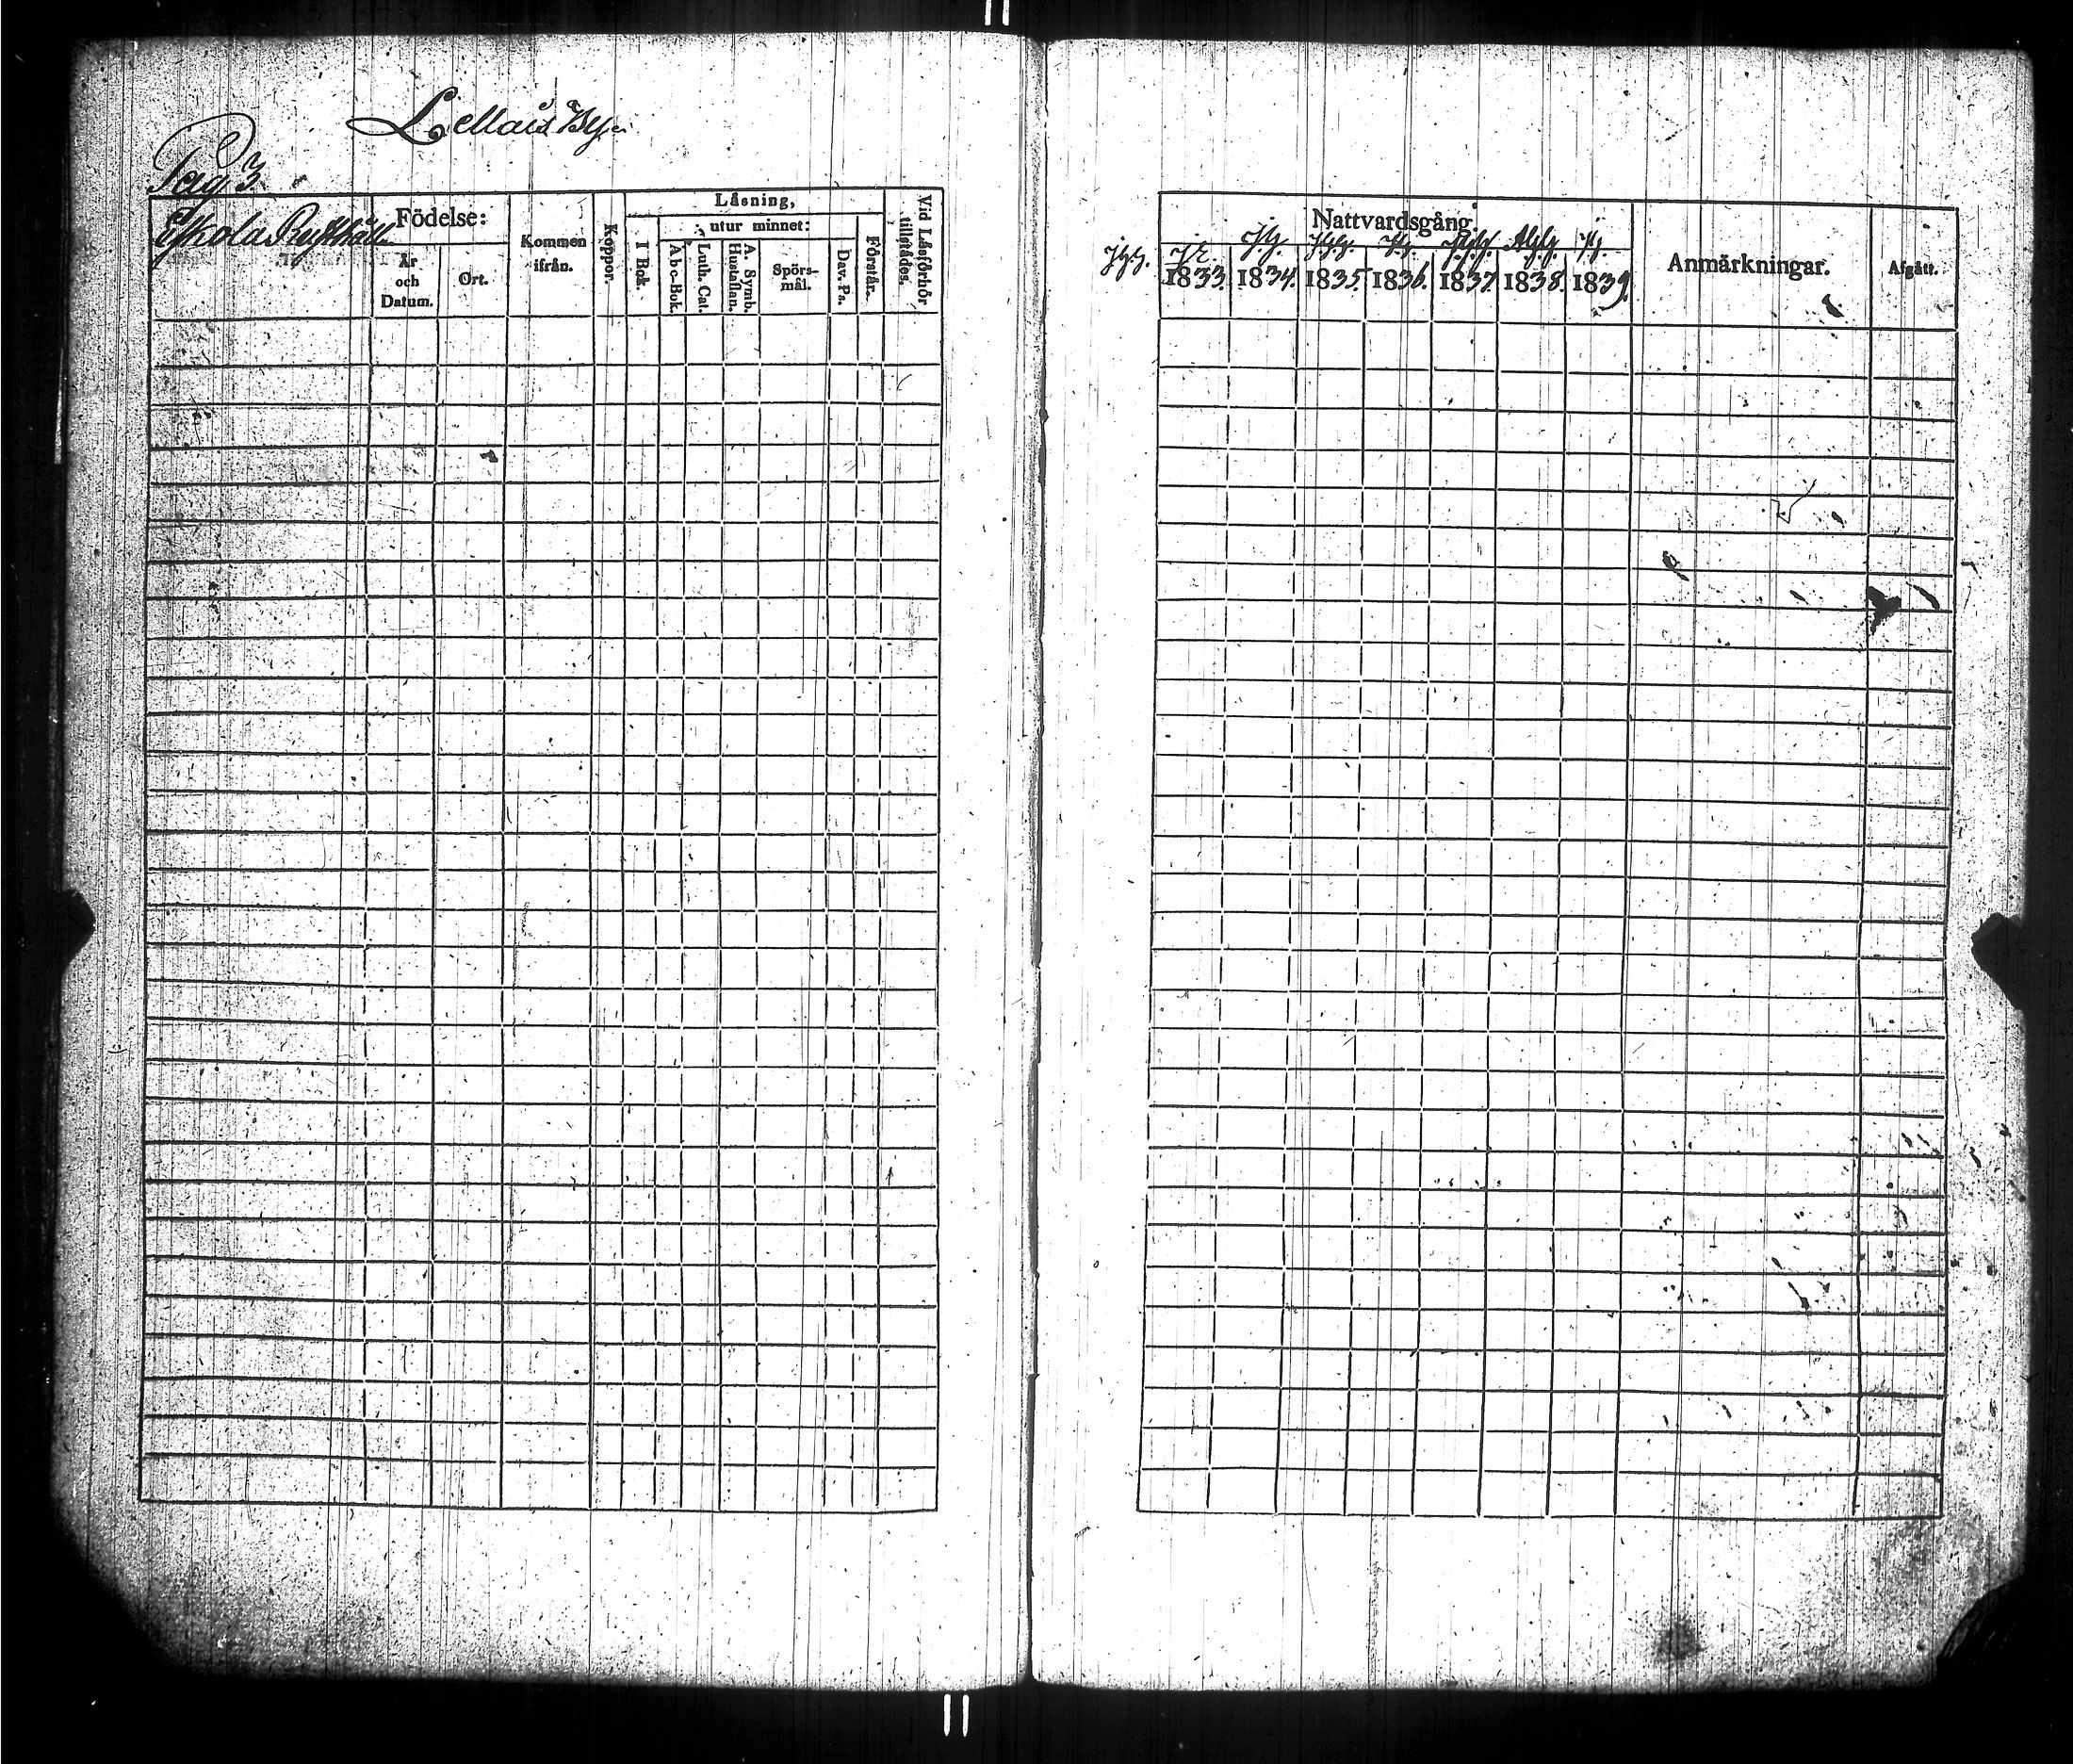 Lellais By.
Pag 3
Eskola Rusthåll
Födelse:
År och Datum.
Ort.
Kommen ifrån.
Koppor.
Låsning,
utur minnet:
I Bok.
Abc-Bok.
Luth. Cat.
A. Symb. Hustaflan.
Spörs-mål.
Dav. Ps.
Förstår.
Vid Låsförhör tillstådes.
Nattvardsgång.
1833. 1834. 1835. 1836. 1837. 1838. 1839.
Anmärkningar.
Afgått.